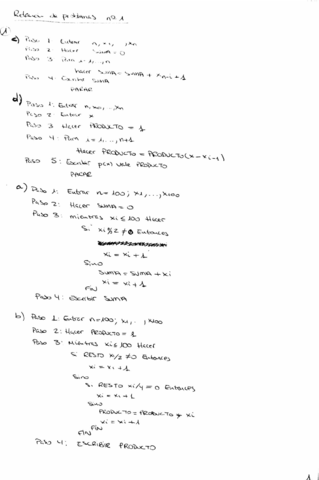 Relación de problemas nº 1
c) Paso 1 Entrar n, x1, ..., xn
Paso 2 Hacer SUMA = 0
Paso 3 Para i = 1, ..., n
Hacer SUMA = SUMA + xn-i+1
Paso 4 Escribir SUMA
PARAR
d) Paso 1: Entrar n, x0, ..., xn
Paso 2 Entrar x
Paso 3 Hacer PRODUCTO = 1
Paso 4: Para i = 1, ..., n+1
Hacer PRODUCTO = PRODUCTO(x - xi-1)
Paso 5: Escribir p(x) vale PRODUCTO
PARAR
a) Paso 1: Entrar n = 100; x1, ..., x100
Paso 2: Hacer SUMA = 0
Paso 3: mientras xi ≤ 100 Hacer
Si xi%2 ≠ 0 Entonces
xi = xi + 1
Sino
SUMA = SUMA + xi
xi = xi + 1
FIN
Paso 4: Escribir SUMA
b) Paso 1: Entrar n=100; x1, ..., x100
Paso 2: Hacer PRODUCTO = 1
Paso 3: Mientras xi ≤ 100 Hacer
Si RESTO xi/2 ≠ 0 Entonces
xi = xi + 1
Sino
Si RESTO xi/4 = 0 Entonces
xi = xi + 1
Sino
PRODUCTO = PRODUCTO * xi
xi = xi + 1
FIN
FIN
Paso 4: ESCRIBIR PRODUCTO
1